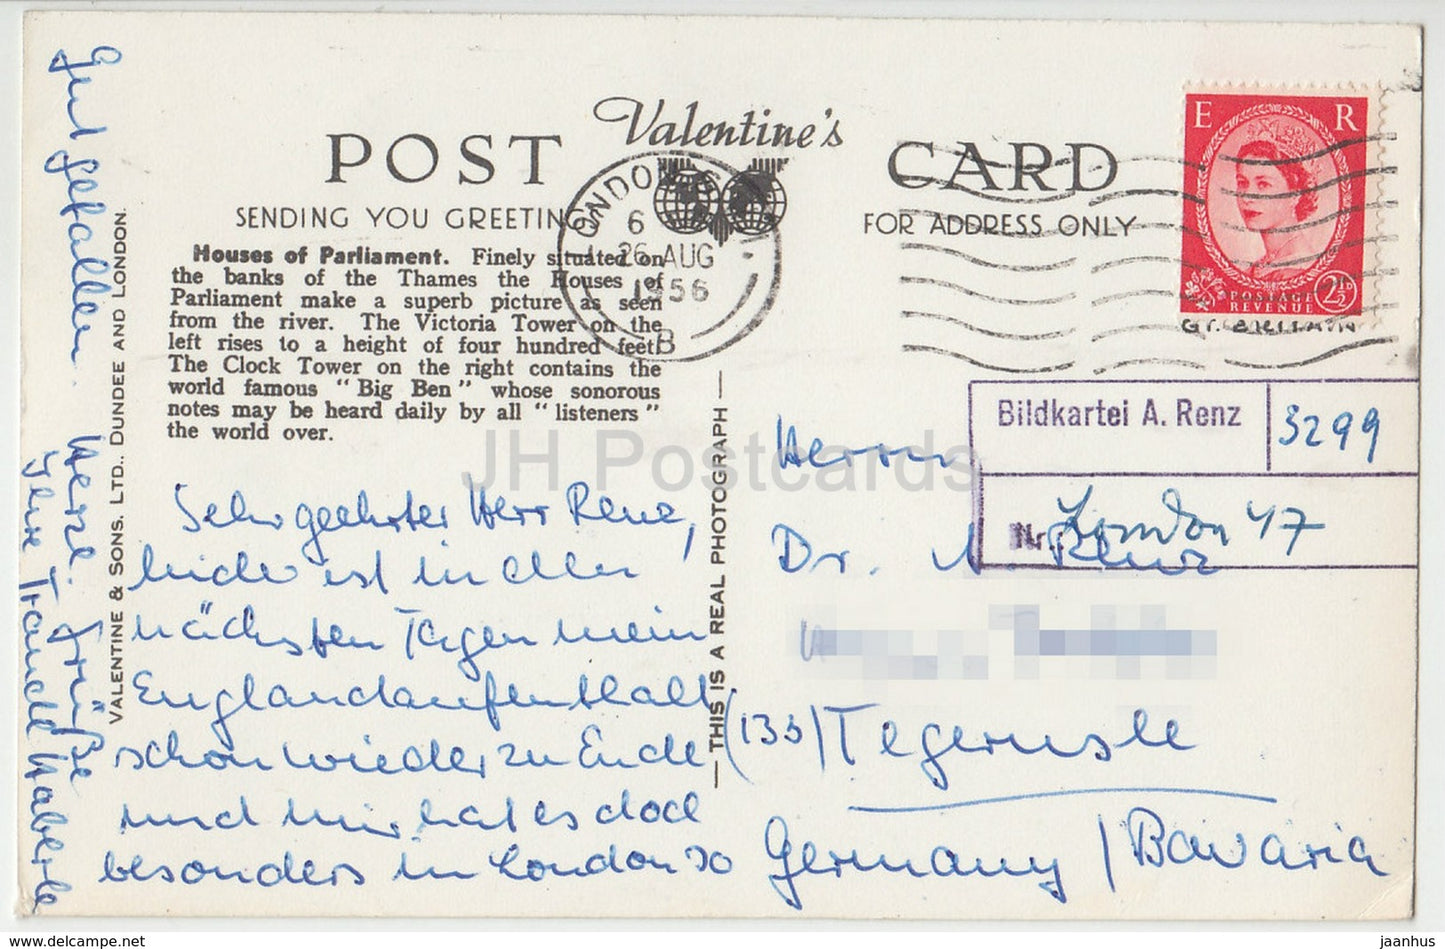 POST Valentine's CARD
SENDING YOU GREETINGS
FOR ADDRESS ONLY
Houses of Parliament. Finely situated on
the banks of the Thames the Houses of
Parliament make a superb picture as seen
from the river. The Victoria Tower on the
left rises to a height of four hundred feet.
The Clock Tower on the right contains the
world famous "Big Ben" whose sonorous
notes may be heard daily by all "listeners"
the world over.
LONDON
6
26 AUG
1956
B
E R
POSTAGE
REVENUE
2½D
GT. BRITAIN
Bildkartei A. Renz 3299
Nr. London 47
Sehr geehrter Herr Renz,
leider ist in den
nächsten Tagen mein
Englandaufenthalt
schon wieder zu Ende
und mir hat es doch
besonders in London so
gut gefallen.
Herzl. Grüße
Ihre Traudl Haberle
VALENTINE & SONS. LTD., DUNDEE AND LONDON.
— THIS IS A REAL PHOTOGRAPH —
Herrn
Dr. A. Renz
(13b) Tegernsee
Germany / Bavaria
JH Postcards
www.delcampe.net
jaanhus